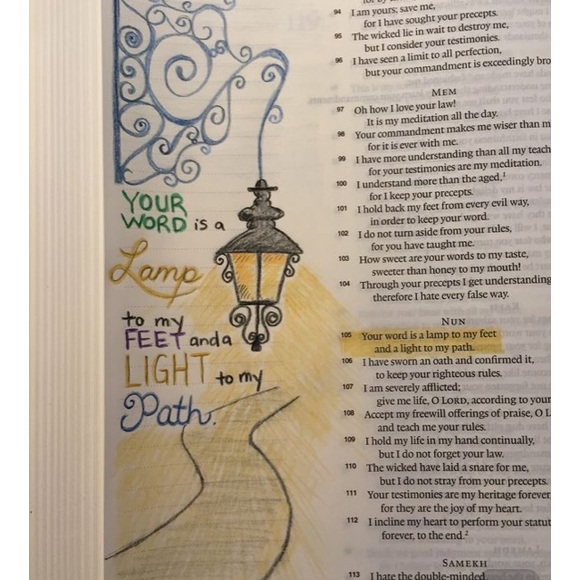 YOUR
WORD is a
Lamp
to my
FEET and a
LIGHT to my
Path.
94 I am yours; save me,
for I have sought your precepts.
95 The wicked lie in wait to destroy me,
but I consider your testimonies.
96 I have seen a limit to all perfection,
but your commandment is exceedingly bro
MEM
97 Oh how I love your law!
It is my meditation all the day.
98 Your commandment makes me wiser than m
for it is ever with me.
99 I have more understanding than all my teach
for your testimonies are my meditation.
100 I understand more than the aged,1
for I keep your precepts.
101 I hold back my feet from every evil way,
in order to keep your word.
102 I do not turn aside from your rules,
for you have taught me.
103 How sweet are your words to my taste,
sweeter than honey to my mouth!
104 Through your precepts I get understanding
therefore I hate every false way.
NUN
105 Your word is a lamp to my feet
and a light to my path.
106 I have sworn an oath and confirmed it,
to keep your righteous rules.
107 I am severely afflicted;
give me life, O LORD, according to your
108 Accept my freewill offerings of praise, O L
and teach me your rules.
109 I hold my life in my hand continually,
but I do not forget your law.
110 The wicked have laid a snare for me,
but I do not stray from your precepts.
111 Your testimonies are my heritage forever
for they are the joy of my heart.
112 I incline my heart to perform your statut
forever, to the end.2
SAMEKH
113 I hate the double-minded